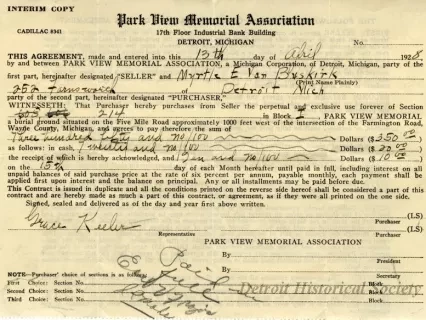 INTERIM COPY
Park View Memorial Association
CADILLAC 8341
17th Floor Industrial Bank Building
DETROIT, MICHIGAN
No.
THIS AGREEMENT, made and entered into this 13th day of April 1928
by and between PARK VIEW MEMORIAL ASSOCIATION, a Michigan Corporation, of Detroit, Michigan, party of the
first part, hereinafter designated "SELLER" and Myrtle E Van Buskirk
(Print Name Plainly)
252 Farnsworth of Detroit Mich
party of the second part, hereinafter designated "PURCHASER,"
WITNESSETH: That Purchaser hereby purchases from Seller the perpetual and exclusive use forever of Section
214 in Block I PARK VIEW MEMORIAL
a burial ground situated on Five Mile Road approximately 1000 feet west of the intersection of the Farmington Road,
Wayne County, Michigan, and agrees to pay therefore the sum of
Three hundred fifty and no/100 Dollars ($350.00)
as follows: in cash, Twenty and no/100 Dollars ($20.00)
the receipt of which is hereby acknowledged, and Ten and no/100 Dollars ($10.00)
on the 15th day of each Month hereafter until paid in full, including interest on all
unpaid balances of said purchase price at the rate of six percent per annum, payable monthly, each payment shall be
applied first upon interest and the balance on principal. Any or all instalments may be paid before due.
This Contract is issued in duplicate and all the conditions printed on the reverse side hereof shall be considered a part of this
contract and are hereby made as much a part of this contract, or agreement, as if they were all printed on the one side.
Signed, sealed and delivered as of the day and year first above written.
(LS)
Purchaser
Grace Keeler
(LS)
Representative
Purchaser
PARK VIEW MEMORIAL ASSOCIATION
By
President
Paid
By
full
Secretary
NOTE—Purchaser's choice of sections is as follows:
First Choice: Section No. Block
Second Choice: Section No. Block
Third Choice: Section No. Block
Detroit Historical Society